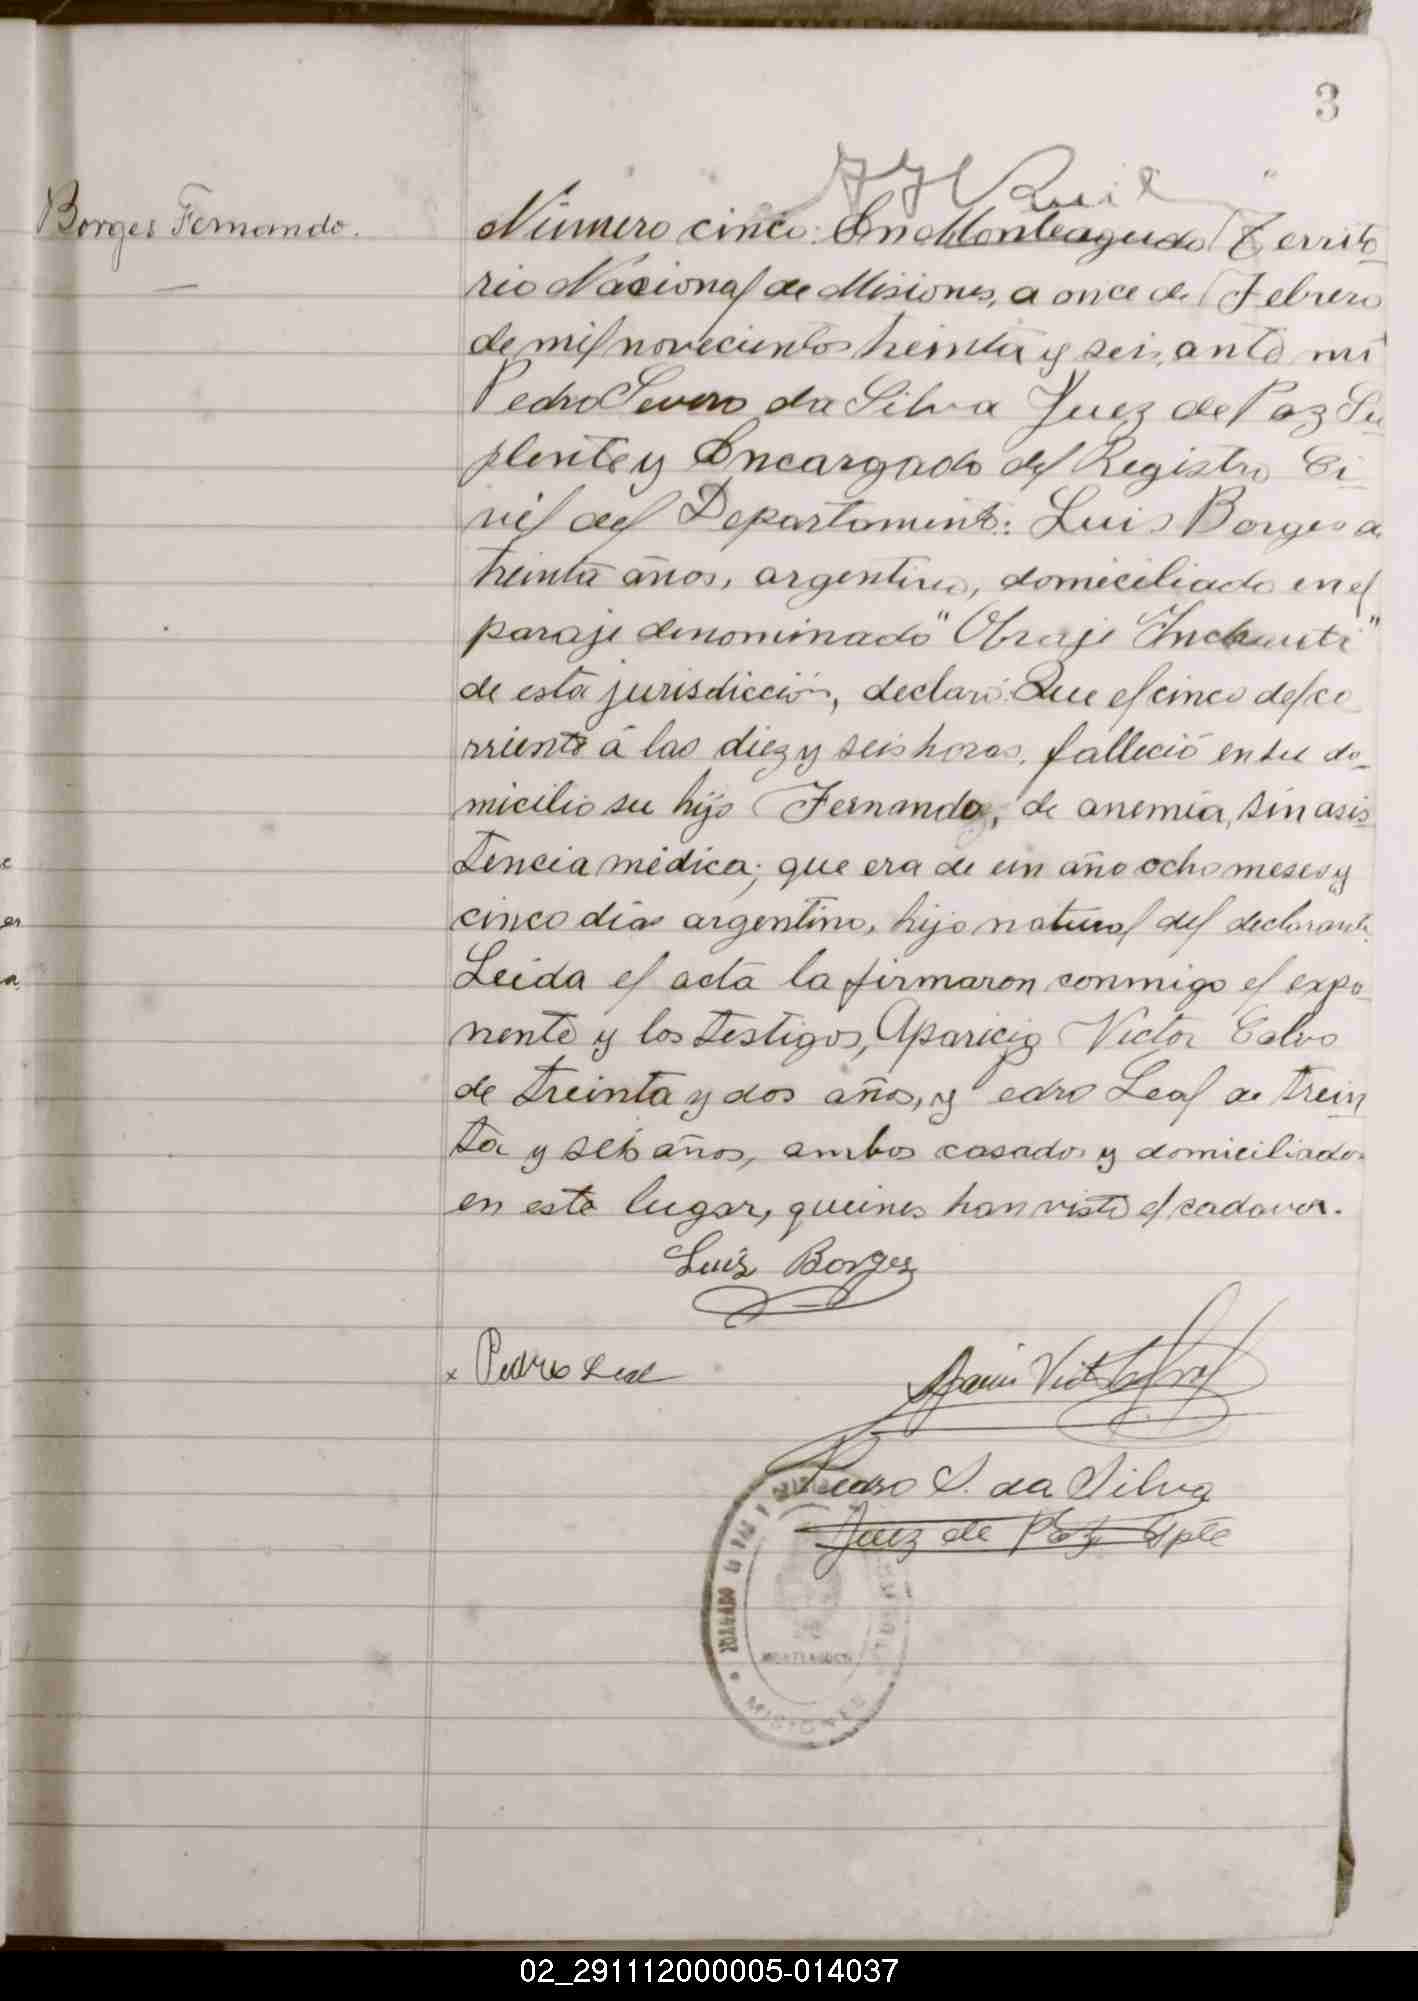 3
Borges Fernando.
Número cinco: En Monteagudo Territo
rio Nacional de Misiones, a once de Febrero
de mil novecientos treinta y seis, ante mi
Pedro Severo da Silva Juez de Paz Su_
plente y Encargado del Registro Ci_
vil del Departamento: Luis Borges de
treinta años, argentino, domiciliado en el
paraje denominado "Obraje Inchausti"
de esta jurisdicción, declaró: Que el cinco del co_
rriente á las diez y seis horas, falleció en su do_
micilio su hijo Fernando, de anemia, sin asis
tencia médica; que era de un año ocho meses y
cinco dias argentino, hijo natural del declarante.
Leida el acta la firmaron conmigo el expo_
nente y los testigos, Aparicio Victor Calvo
de treinta y dos años, y Pedro Leal de trein
ta y seis años, ambos casados y domiciliados
en este lugar, queines han visto el cadaver.
Luis Borges
x Pedro Leal
Pedro S. da Silva
Juez de Paz Splte
JUZGADO DE PAZ Y
MONTEAGUDO
MISIONES
02_291112000005-014037